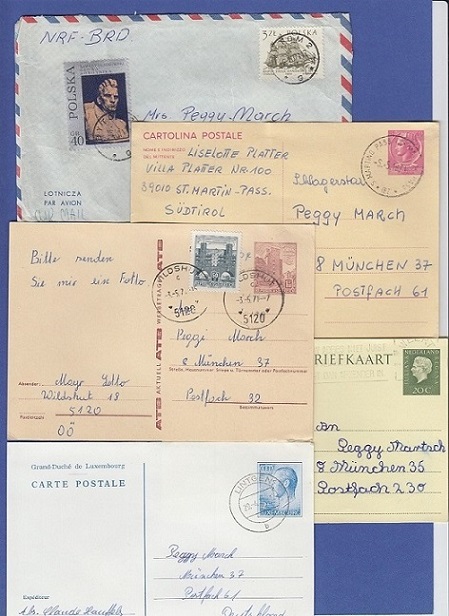 NRF-BRD
3 ZŁ POLSKA
POLSKA
GR 40
Mrs Peggy-March
LOTNICZA
PAR AVION
AIR MAIL
CARTOLINA POSTALE
LISELOTTE PLATTER
VILLA PLATTER NR-100
39010 ST. MARTIN-PASS.
SÜDTIROL
Schlagerstar
Peggy MARCH
8 MÜNCHEN 37
POSTFACH 61
Bitte senden
Sie mir eine Foto
WILDSHUT
-3.-5.71-
5120
5120
ATS AKTUELL ATS WERBETRÄGER ATS
Peggi March
8 München 37
Straße, Hausnummer
Postfach 32
Bestimmungsort
Absender:
Wildshut 18
5120
OÖ
Postleitzahl
BRIEFKAART
NEDERLAND
20C
An
Peggy Martsch
8 München 35
Postfach 230
Grand-Duché de Luxembourg
CARTE POSTALE
LINTGEN
Peggy March
München 37
Postfach 61
Deutschland
Expéditeur